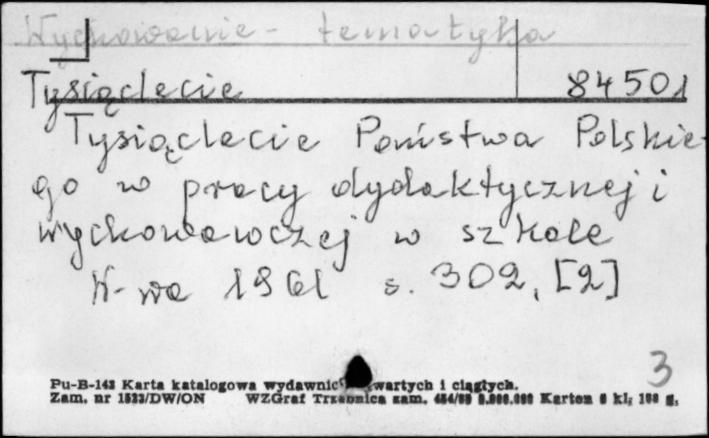 Wychowanie - tematyka
Tysiąclecie 84501
Tysiąclecie Państwa Polskie-
go w pracy dydaktycznej i
wychowawczej w szkole
W-wa 1961 s. 302, [2]
3
Pu-B-143 Karta katalogowa wydawnic wartych i ciągłych.
Zam. nr 1523/DW/ON WZGraf Trzebnica zam. Karton kl.